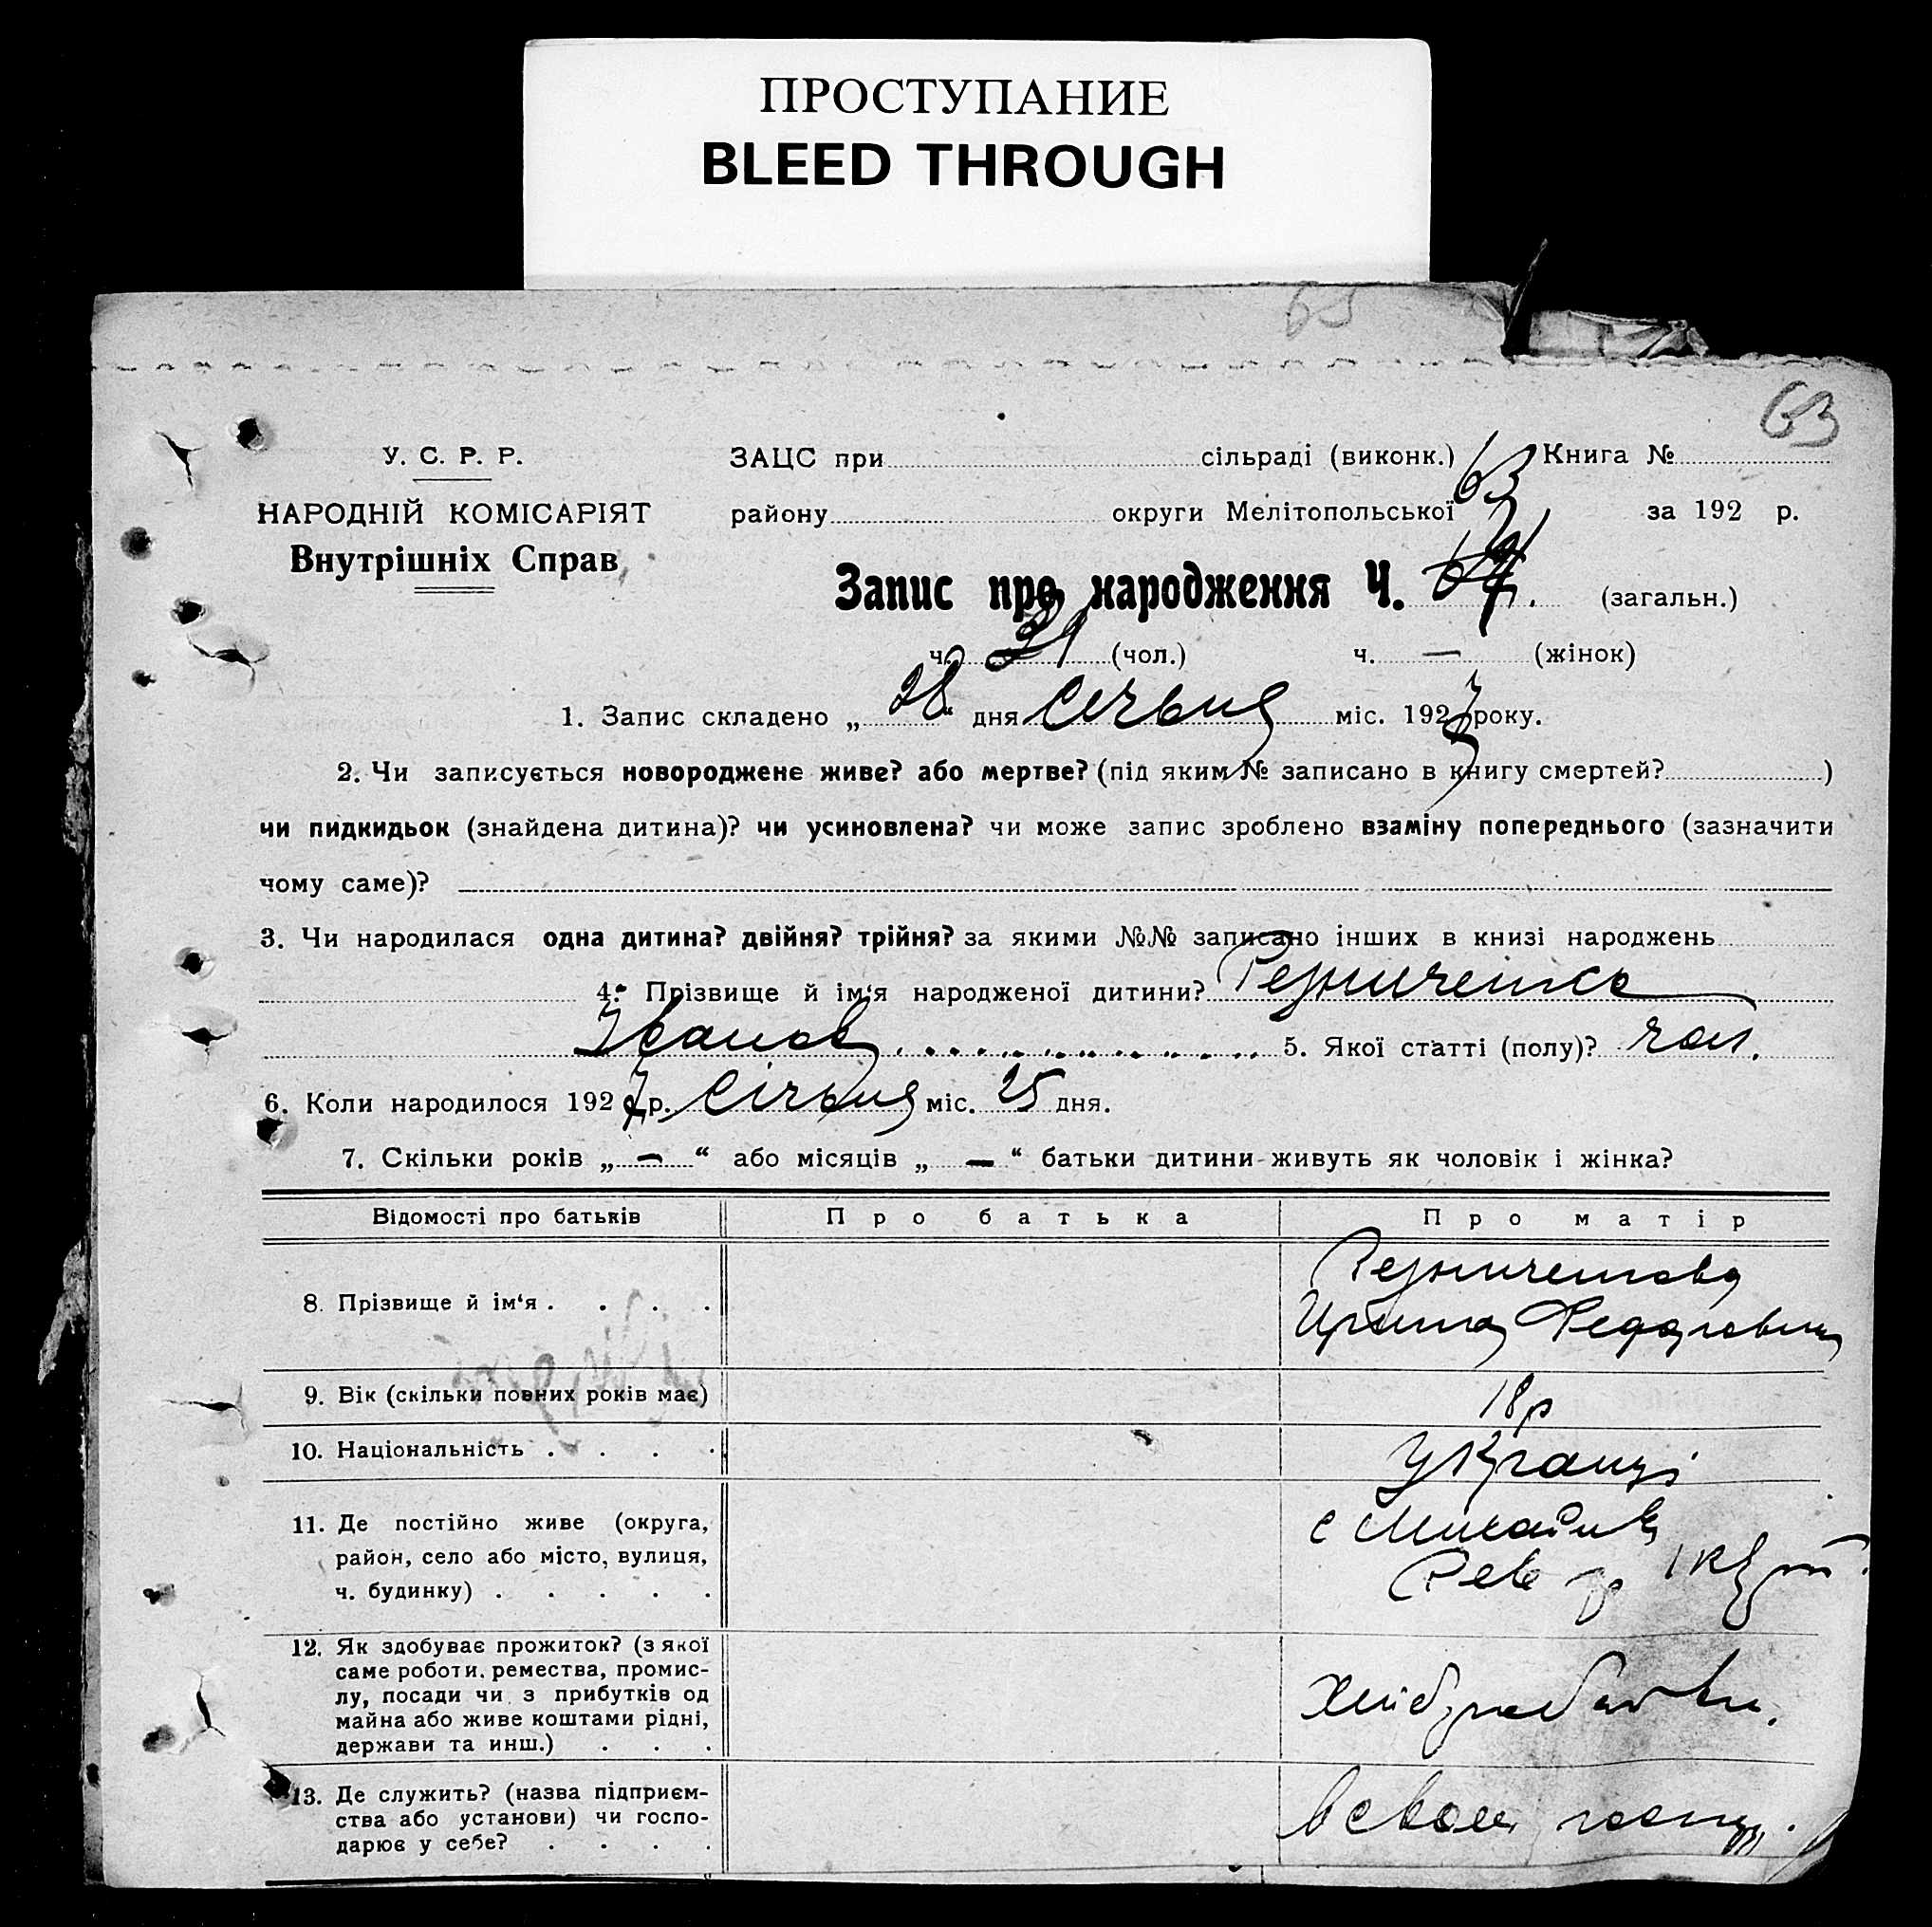 ПРОСТУПАНИЕ
BLEED THROUGH
63
У. С. Р. Р.
НАРОДНІЙ КОМІСАРІЯТ
Внутрішніх Справ
ЗАЦС при сільраді (виконк.) Книга №
63
району округи Мелітопольської за 192 р.
Запис про народження Ч. (загальн.)
ч. 31 (чол.) ч. — (жінок)
1. Запис складено „28“ дня Січьня міс. 1927 року.
2. Чи записується новороджене живе? або мертве? (під яким № записано в книгу смертей? )
чи пидкидьок (знайдена дитина)? чи усиновлена? чи може запис зроблено взаміну попереднього (зазначити
чому саме)?
3. Чи народилася одна дитина? двійня? трійня? за якими №№ записано інших в книзі народжень
4. Прізвище й ім‘я народженої дитини? Резниченко
Іванов 5. Якої статті (полу)? чол.
6. Коли народилося 1927 р. Січьня міс. 25 дня.
7. Скільки років „—“ або місяців „—“ батьки дитини живуть як чоловік і жінка?
Відомості про батьків Про батька Про матір
8. Прізвище й ім‘я . . . . Резниченкова
Ирина Федоровна
9. Вік (скільки повних років має) 18 р
10. Національність . . . . Украінці
11. Де постійно живе (округа,
район, село або місто, вулиця,
ч. будинку) . . . . .
с Михайлів
Рев
12. Як здобуває прожиток? (з якої
саме роботи, ремества, промис-
лу, посади чи з прибутків од
майна або живе коштами рідні,
держави та инш.) . . .
хлибробство.
13. Де служить? (назва підприєм-
ства або установи) чи госпо-
дарює у себе? . . . .
в своем госп.